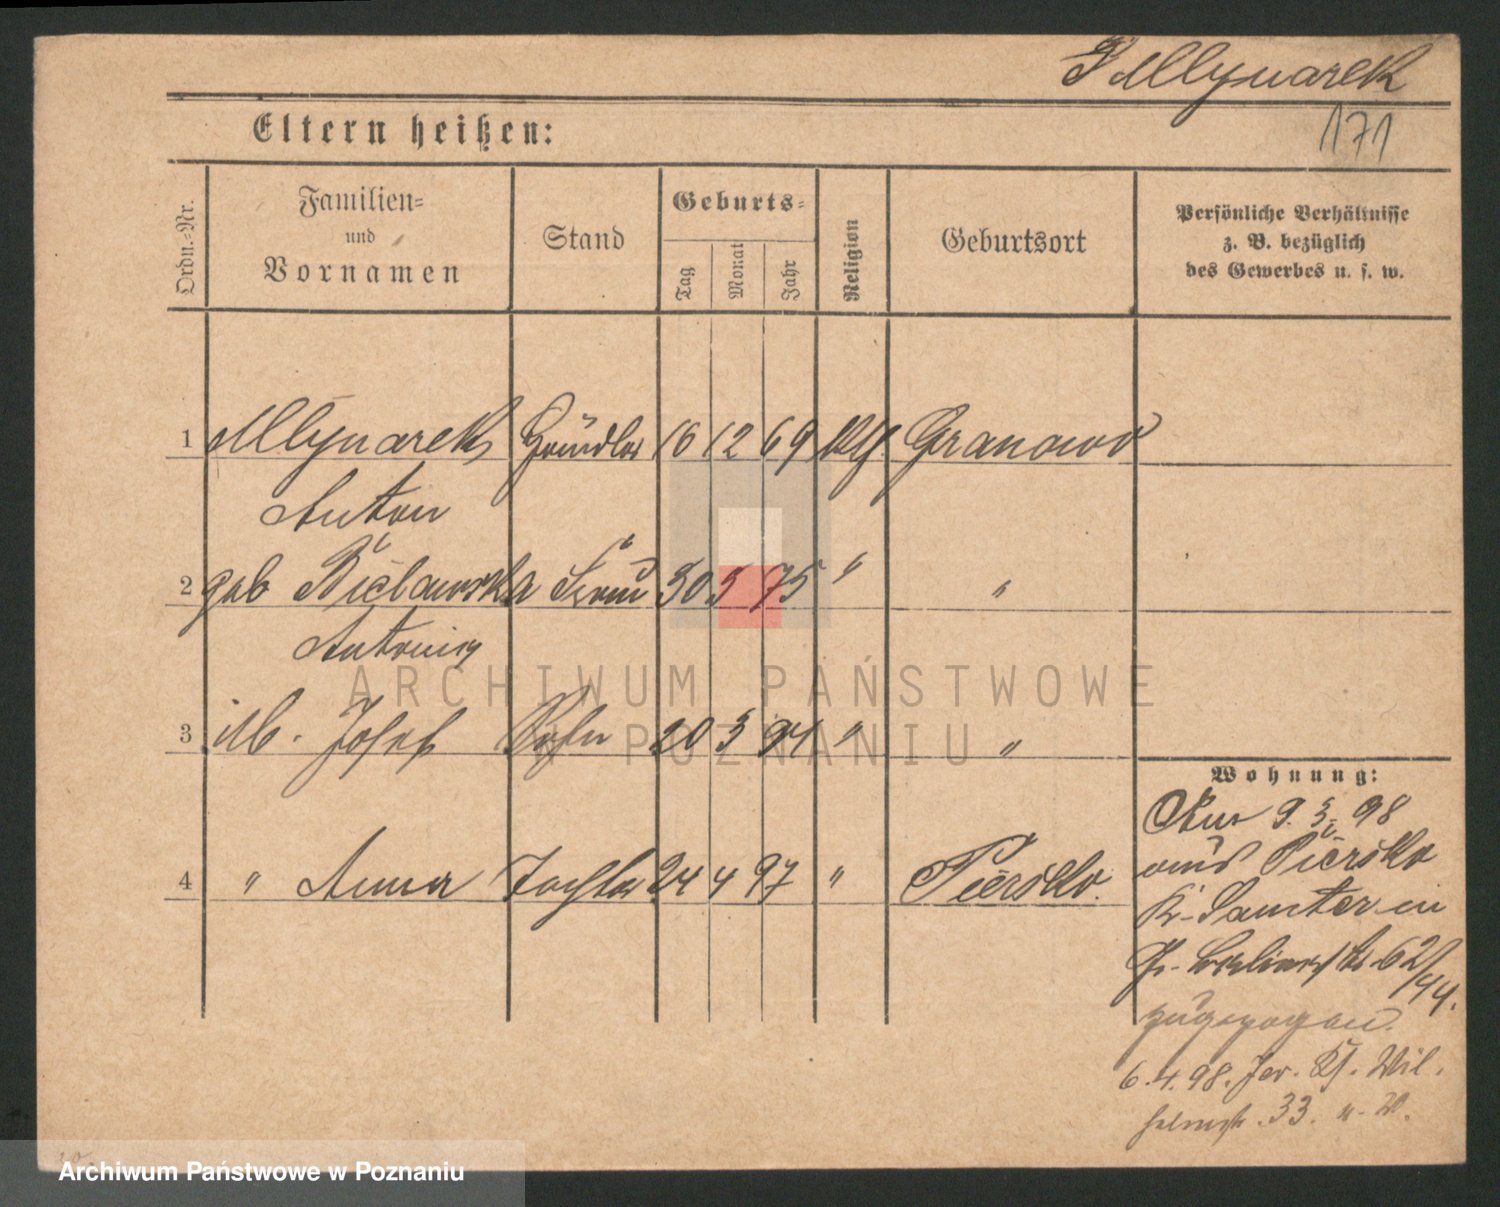 Mlynarek
171
Eltern heißen:
Ordn.=Nr.
Familien=
und
Vornamen
Stand
Geburts=
Tag
Monat
Jahr
Religion
Geburtsort
Persönliche Verhältnisse
z. B. bezüglich
des Gewerbes u. s. w.
1 Mlynarek Händler 16 12 69 Granowo
Anton
2 geb Bielawska Frau 30 5 75 " "
Antonie
3 Josef Sohn 20 3 94 " "
4 " Anna Tochter 24 4 97 " Piersko.
Wohnung:
Am 9.3. 98
aus Piersko
Kr. Samter in
62/44.
zugezogen.
6.4.98. Jer. Wil-
helmstr. 33.
ARCHIWUM PAŃSTWOWE
W POZNANIU
Archiwum Państwowe w Poznaniu